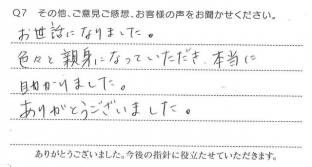 Q7 その他、ご意見ご感想、お客様の声をお聞かせください。
お世話になりました。
色々と親身になっていただき、本当に
助かりました。
ありがとうございました。
ありがとうございました。今後の指針に役立たせていただきます。